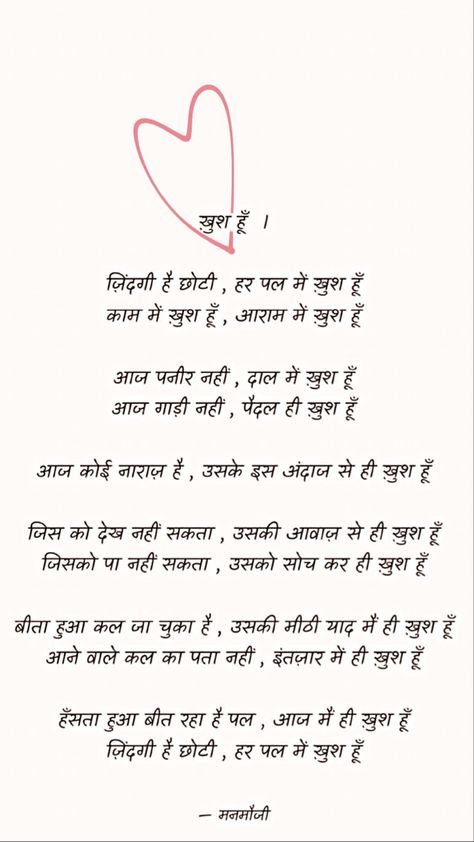 ख़ुश हूँ ।
ज़िंदगी है छोटी , हर पल में ख़ुश हूँ
काम में ख़ुश हूँ , आराम में ख़ुश हूँ
आज पनीर नहीं , दाल में ख़ुश हूँ
आज गाड़ी नहीं , पैदल ही ख़ुश हूँ
आज कोई नाराज़ है , उसके इस अंदाज से ही ख़ुश हूँ
जिस को देख नहीं सकता , उसकी आवाज़ से ही ख़ुश हूँ
जिसको पा नहीं सकता , उसको सोच कर ही ख़ुश हूँ
बीता हुआ कल जा चुका है , उसकी मीठी याद मैं ही ख़ुश हूँ
आने वाले कल का पता नहीं , इंतज़ार में ही ख़ुश हूँ
हँसता हुआ बीत रहा है पल , आज मैं ही ख़ुश हूँ
ज़िंदगी है छोटी , हर पल में ख़ुश हूँ
– मनमौजी